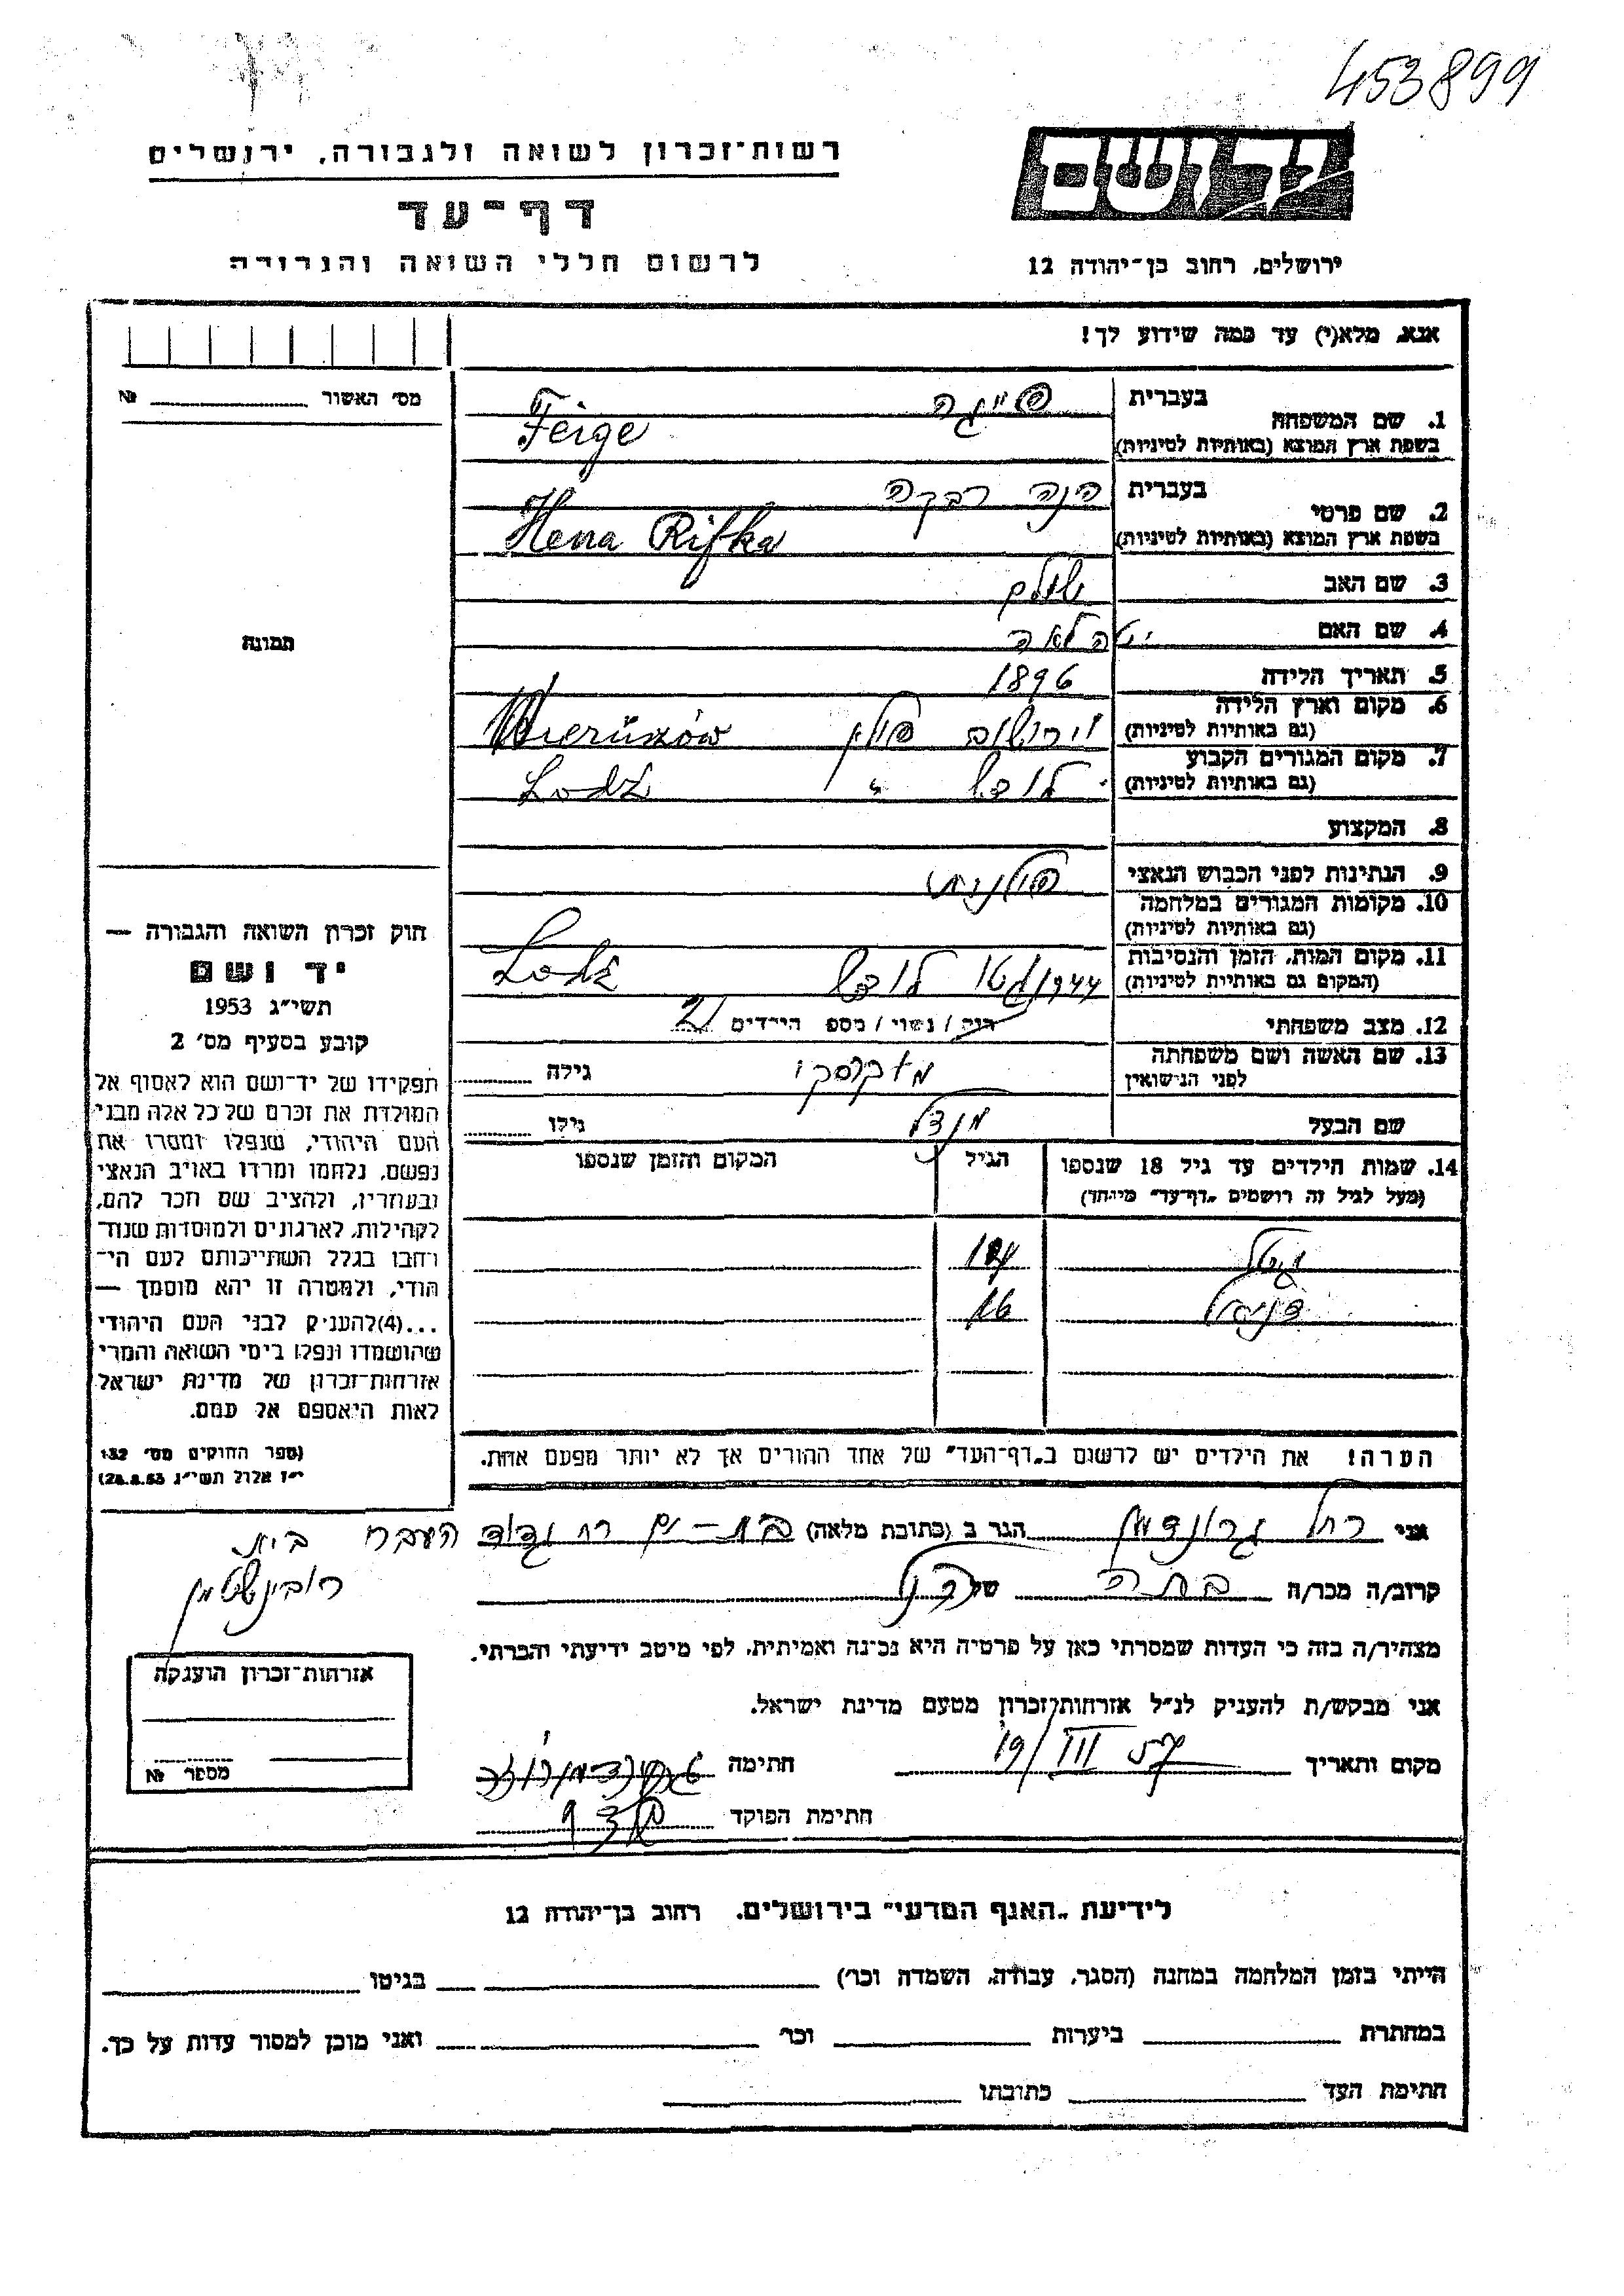 453899
רשות־זכרון לשואה ולגבורה, ירושלים
יד ושם
דף־עד
לרשום חללי השואה והגבורה
ירושלים, רחוב בן־יהודה 12
אנא, מלא(י) עד כמה שידוע לך!
מס׳ האשור № 
1. שם המשפחה
בעברית פייגה
בשפת ארץ המוצא (באותיות לטיניות) Feige
2. שם פרטי
בעברית הנה רבקה
בשפת ארץ המוצא (באותיות לטיניות) Hena Rifka
3. שם האב
4. שם האם לאה
תמונה
5. תאריך הלידה 1896
6. מקום וארץ הלידה
(גם באותיות לטיניות) פולין
7. מקום המגורים הקבוע
(גם באותיות לטיניות) לודז׳ " Lodź
8. המקצוע
9. הנתינות לפני הכבוש הנאצי פולנית
10. מקומות המגורים במלחמה
(גם באותיות לטיניות)
11. מקום המות, הזמן והנסיבות
(המקום גם באותיות לטיניות) 1944 גטו לודז׳ Lodź
12. מצב משפחתי רוק / נשוי / מספר הילדים 2
13. שם האשה ושם משפחתה
לפני הנישואין גילה
שם הבעל מנדל גילו
14. שמות הילדים עד גיל 18 שנספו
(מעל לגיל זה רושמים „דף־עד" מיוחד)
הגיל
המקום והזמן שנספו
גיטל
דניאל 16
הערה! את הילדים יש לרשום ב„דף־העד" של אחד ההורים אך לא יותר מפעם אחת.
חוק זכרון השואה והגבורה —
יד ושם
תשי״ג 1953
קובע בסעיף מס׳ 2
תפקידו של יד־ושם הוא לאסוף אל
המולדת את זכרם של כל אלה מבני
העם היהודי, שנפלו ומסרו את
נפשם, נלחמו ומרדו באויב הנאצי
ובעוזריו, ולהציב שם וזכר להם,
לקהילות, לארגונים ולמוסדות שנח־
רבו בגלל השתייכותם לעם הי־
הודי, ולמטרה זו יהא מוסמך —
...(4) להעניק לבני העם היהודי
שהושמדו ונפלו בימי השואה והמרי
אזרחות־זכרון של מדינת ישראל
לאות היאספם אל עמם.
(ספר החוקים מס׳ 132
י״ז אלול תשי״ג 28.8.53)
אני רחל הגר ב (כתובת מלאה) בת־ים רח׳ גדוד העברי בית
קרוב/ה מכר/ה בתה של הנ״ל
מצהיר/ה בזה כי העדות שמסרתי כאן על פרטיה היא נכונה ואמיתית, לפי מיטב ידיעתי והכרתי.
אני מבקש/ת להעניק לנ״ל אזרחות־זכרון מטעם מדינת ישראל.
מקום ותאריך 19/III חתימה
חתימת הפוקד
אזרחות־זכרון הוענקה
מספר №
לידיעת „האגף המדעי" בירושלים, רחוב בן־יהודה 12
הייתי בזמן המלחמה במחנה (הסגר, עבודה, השמדה וכו׳) בגיטו
במחתרת ביערות וכו׳ ואני מוכן למסור עדות על כך.
חתימת העד כתובתו